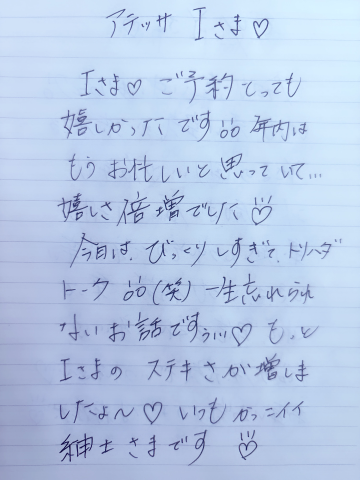 アテッサ Iさま♡
Iさま♡ ご予約とっても
嬉しかったです 年内は
もうお忙しいと思っていて…
嬉しさ倍増でした♡
今日は、びっくりしすぎて、トリハダ
トーク (笑) 一生忘れられ
ないお話ですぅ♡ もっと
Iさまの ステキさが増しま
したょ〜♡ いつもカッコイイ
紳士さまです ♡